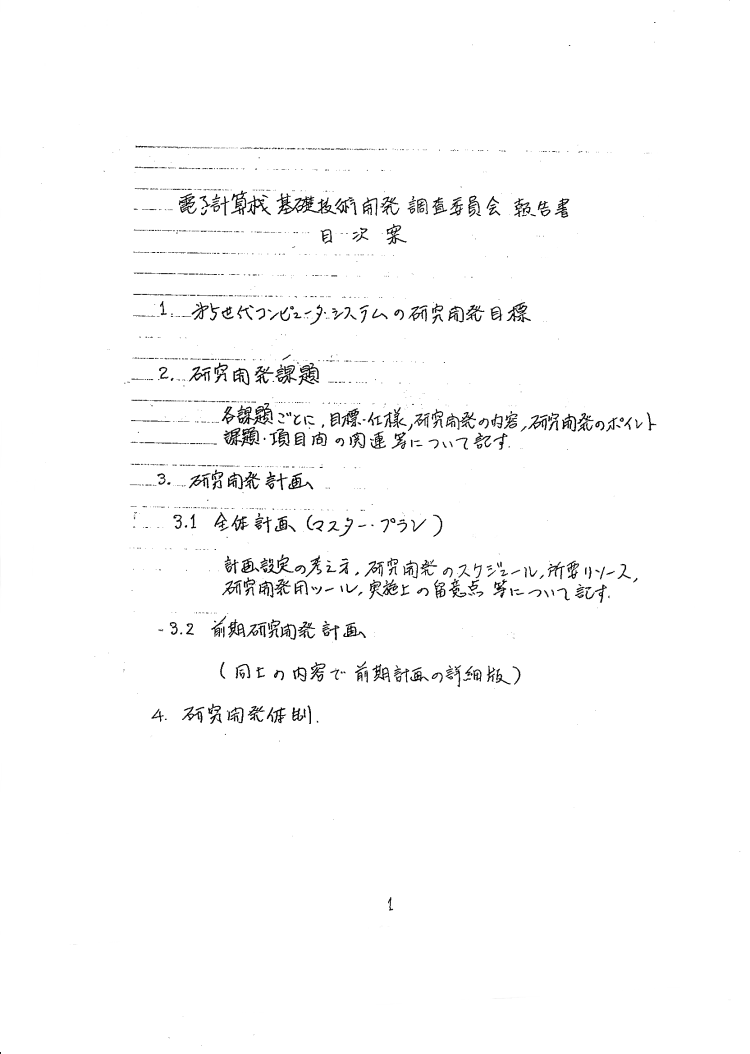 電子計算機基礎技術開発調査委員会 報告書
目次案
1. 第5世代コンピュータ・システムの研究開発目標
2. 研究開発課題
各課題ごとに,目標・仕様,研究開発の内容,研究開発のポイント
課題・項目間の関連等について記す.
3. 研究開発計画
3.1 全体計画(マスター・プラン)
計画設定の考え方,研究開発のスケジュール,所要リソース,
研究開発用ツール,実施上の留意点 等について記す.
3.2 前期研究開発計画
(同上の内容で前期計画の詳細版)
4. 研究開発体制.
1